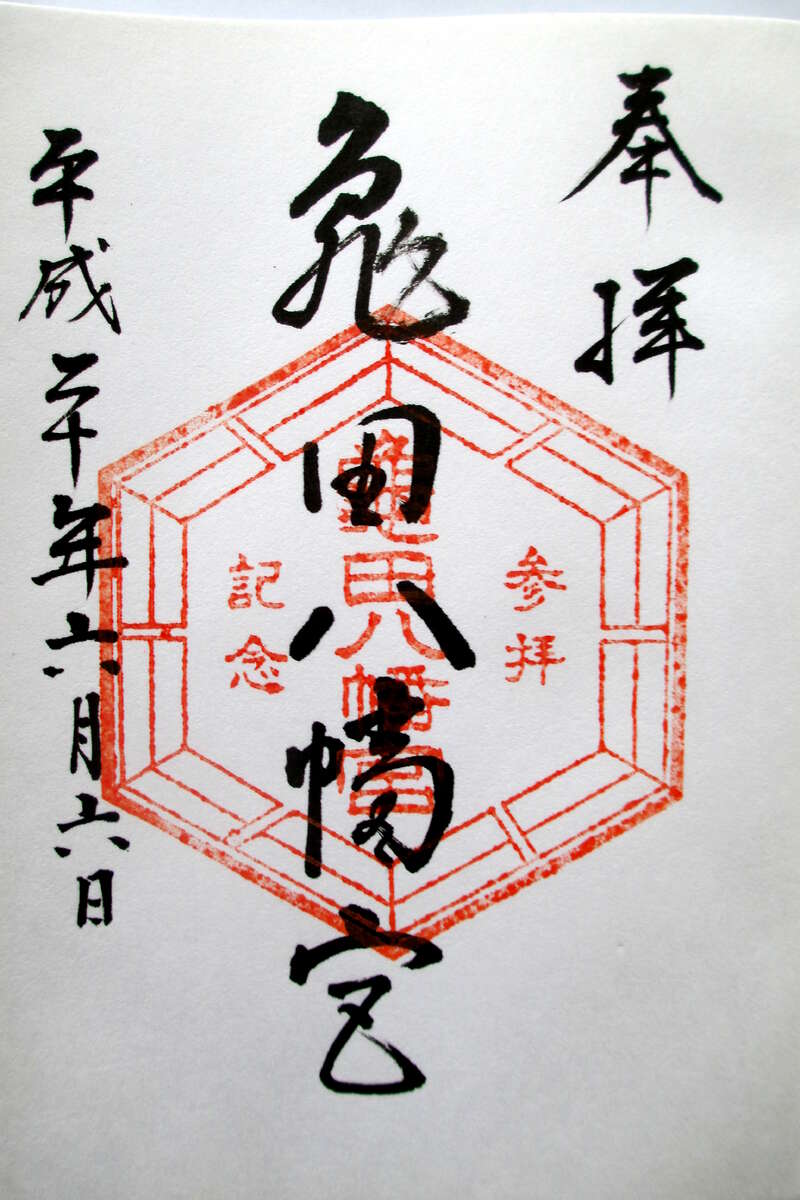 奉拝
亀田八幡宮
平成二十年六月六日
参拝
龜田八幡宮
記念